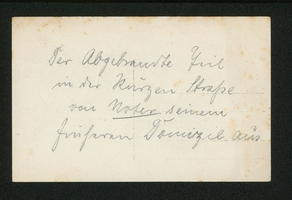 Der Abgebrandte Teil
in der Kurzen Straße
von Noter seinem
früheren Domizel aus